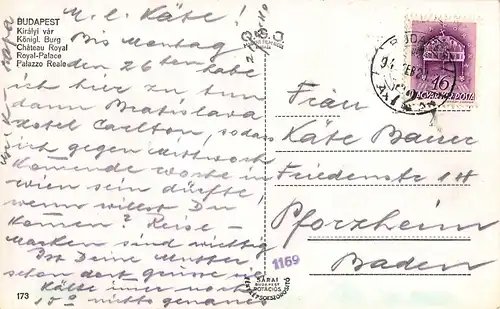 BUDAPEST
Királyi vár
Königl. Burg
Château Royal
Royal-Palace
Palazzo Reale
M. l. Käte!
Bis Montag
den 26ten habe
ich hier zu tun
dann Bratislava
Hotel Carlton, sodass
ich gegen Mittwoch
Kommende Woche in
Wien sein dürfte!
wenn willst Du
Kommen? Reise-
Marken sind wichtig
Ist Deine Mutter
schon dort
Kälte immer noch
15°
173
1169
BUDAPEST
16
MAGYAR POSTA
Frau
Käte Bauer
Friedenstr
Pforzheim
Baden